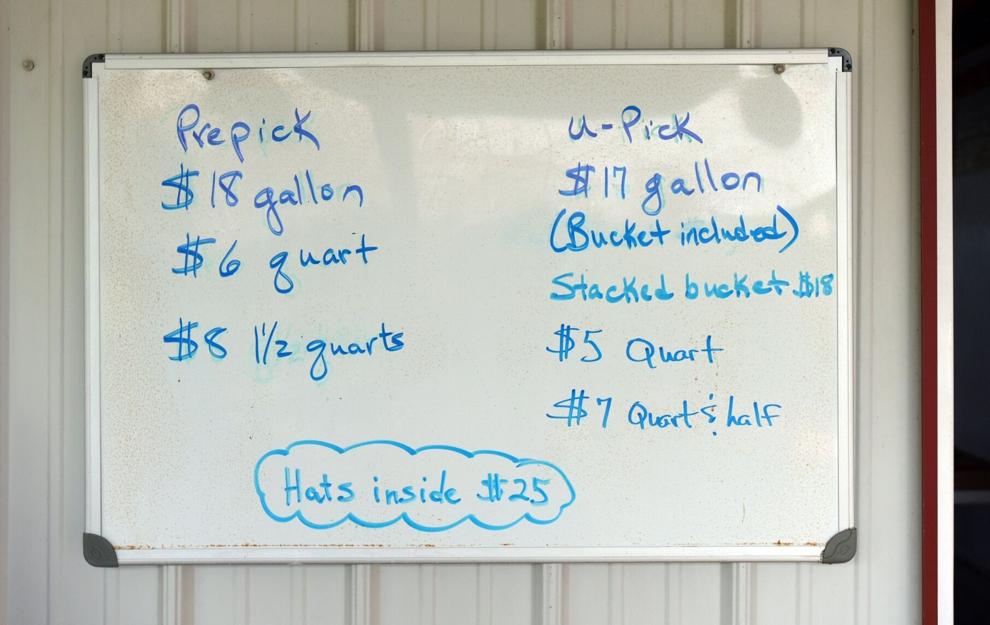 Prepick
$18 gallon
$6 quart
$8 1 1/2 quarts
u-Pick
$17 gallon
(Bucket included)
Stacked bucket $18
$5 Quart
$7 Quart & half
Hats inside $25